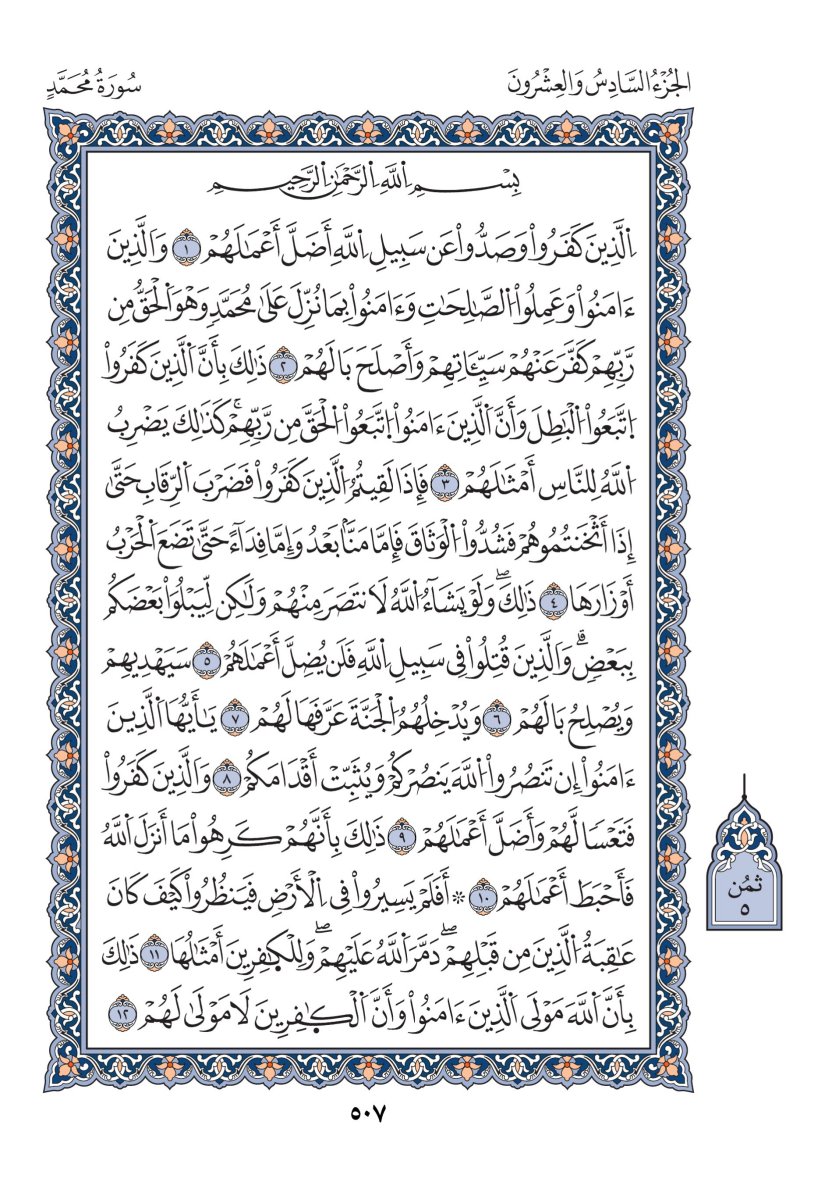 الجُزْءُ السَّادِسُ وَالعِشْرُونَ
سُورَةُ مُحَمَّدٍ
بِسْمِ اِ۬للَّهِ اِ۬لرَّحْمَٰنِ اِ۬لرَّحِيمِ
اِ۬لَّذِينَ كَفَرُواْ وَصَدُّواْ عَن سَبِيلِ اِ۬للَّهِ أَضَلَّ أَعْمَٰلَهُمْ ١ وَالَّذِينَ
ءَامَنُواْ وَعَمِلُواْ اُ۬لصَّٰلِحَٰتِ وَءَامَنُواْ بِمَا نُزِّلَ عَلَىٰ مُحَمَّدٖ وَهْوَ اَ۬لْحَقُّ مِن
رَّبِّهِمْ كَفَّرَ عَنْهُمْ سَيِّـَٔاتِهِمْ وَأَصْلَحَ بَالَهُمْ ٢ ذَٰلِكَ بِأَنَّ اَ۬لَّذِينَ كَفَرُواْ
اُ۪تَّبَعُواْ اُ۬لْبَٰطِلَ وَأَنَّ اَ۬لَّذِينَ ءَامَنُواْ اُ۪تَّبَعُواْ اُ۬لْحَقَّ مِن رَّبِّهِمْۚ كَذَٰلِكَ يَضْرِبُ
اُ۬للَّهُ لِلنَّاسِ أَمْثَٰلَهُمْ ٣ فَإِذَا لَقِيتُمُ اُ۬لَّذِينَ كَفَرُواْ فَضَرْبَ اَ۬لرِّقَابِ حَتَّىٰ
إِذَا أَثْخَنتُمُوهُمْ فَشُدُّواْ اُ۬لْوَثَاقَ فَإِمَّا مَنَّۢا بَعْدُ وَإِمَّا فِدَآءً حَتَّىٰ تَضَعَ اَ۬لْحَرْبُ
أَوْزَارَهَا ٤ ذَٰلِكَۖ وَلَوْ يَشَآءُ اُ۬للَّهُ لَانتَصَرَ مِنْهُمْ وَلَٰكِن لِّيَبْلُوَاْ بَعْضَكُم
بِبَعْضٖۗ وَالَّذِينَ قُتِلُواْ فِي سَبِيلِ اِ۬للَّهِ فَلَن يُضِلَّ أَعْمَٰلَهُمْ ٥ سَيَهْدِيهِمْ
وَيُصْلِحُ بَالَهُمْ ٦ وَيُدْخِلُهُمُ اُ۬لْجَنَّةَ عَرَّفَهَا لَهُمْ ٧ يَٰأَيُّهَا اَ۬لَّذِينَ
ءَامَنُواْ إِن تَنصُرُواْ اُ۬للَّهَ يَنصُرْكُمْ وَيُثَبِّتْ أَقْدَامَكُمْ ٨ وَالَّذِينَ كَفَرُواْ
فَتَعْسٗا لَّهُمْ وَأَضَلَّ أَعْمَٰلَهُمْ ٩ ذَٰلِكَ بِأَنَّهُمْ كَرِهُواْ مَا أَنزَلَ اَ۬للَّهُ
فَأَحْبَطَ أَعْمَٰلَهُمْ ١٠ ۞ أَفَلَمْ يَسِيرُواْ فِي اِ۬لْأَرْضِ فَيَنظُرُواْ كَيْفَ كَانَ
عَٰقِبَةُ اُ۬لَّذِينَ مِن قَبْلِهِمْۖ دَمَّرَ اَ۬للَّهُ عَلَيْهِمْۖ وَلِلْكٰ۪فِرِينَ أَمْثَٰلُهَا ١١ ذَٰلِكَ
بِأَنَّ اَ۬للَّهَ مَوْلَى اَ۬لَّذِينَ ءَامَنُواْ وَأَنَّ اَ۬لْكٰ۪فِرِينَ لَا مَوْلَىٰ لَهُمْ ١٢
ثُمُن
٥
٥٠٧